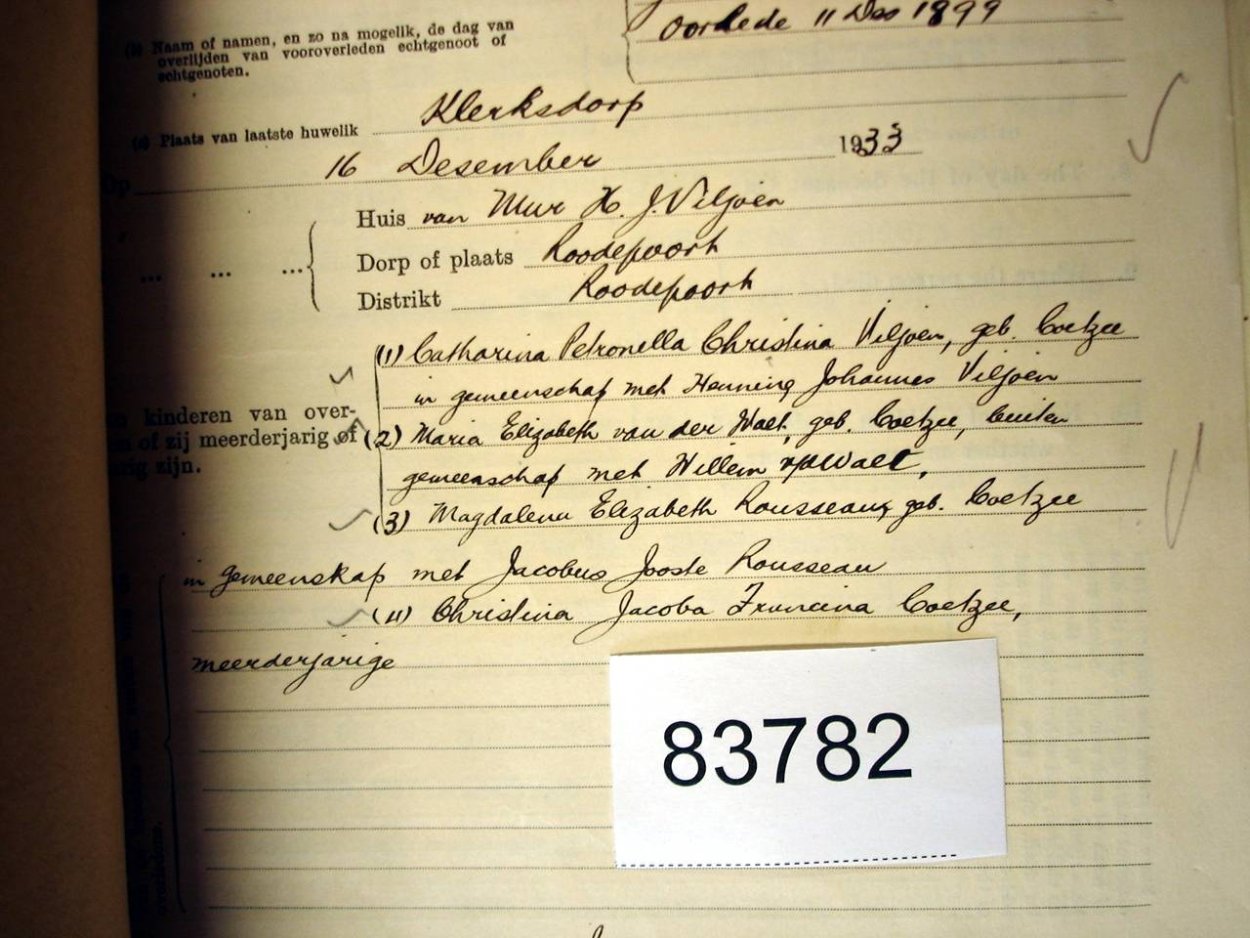 oorlede 11 Des 1899
Naam of namen, en zo na mogelik, de dag van
overlijden van vooroverleden echtgenoot of
echtgenoten.
Plaats van laatste huwelik Klerksdorp
Op 16 Desember 1933
Huis van Mnr H. J. Viljoen
Dorp of plaats Roodepoort
Distrikt Roodepoort
(1) Catharina Petronella Christina Viljoen, geb. Coetzee
in gemeenschap met Henning Johannes Viljoen
kinderen van over-
of zij meerderjarig of (2) Maria Elizabeth van der Walt, geb. Coetzee, buiten
zijn. gemeenschap met Willem v/d Walt,
(3) Magdalena Elizabeth Rousseau, geb. Coetzee
in gemeenskap met Jacobus Jooste Rousseau
(4) Christina Jacoba Francina Coetzee,
meerderjarige
83782